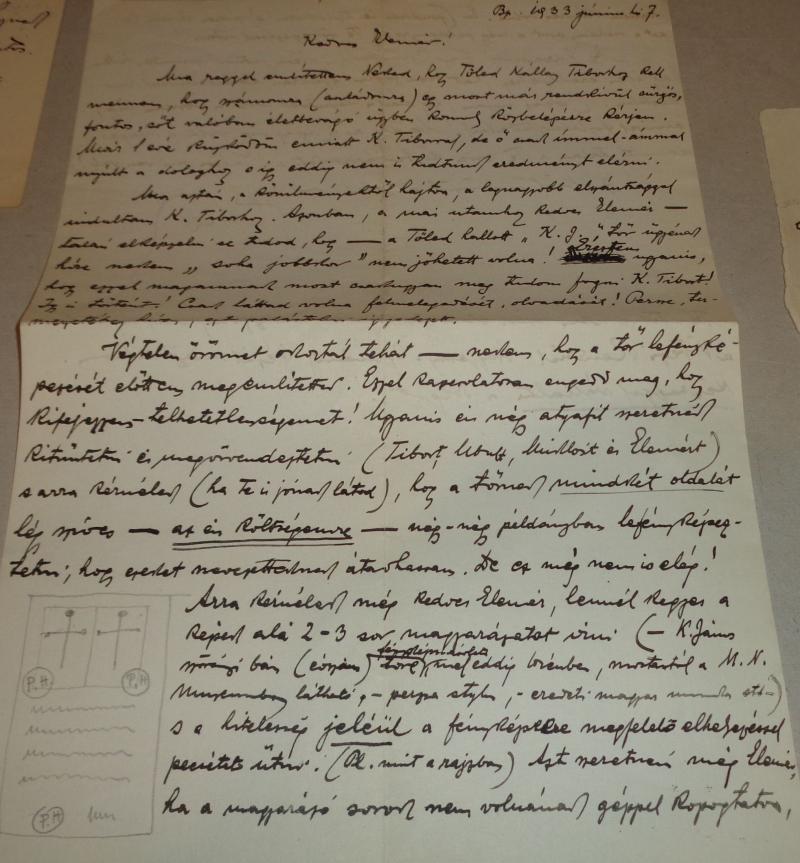 Bp. 1933 június 7.
Kedves Elemér!
Ma reggel említettem Neked, hogy Tőled Kállay Tiborhoz kell
mennem, hogy számomra (családomra) egy most már rendkívül sürgős,
fontos, sőt valóban életbevágó ügyben komoly közbelépésre kérjem.
Már 1 éve küzködöm emiatt K. Tiborral, de ő csak ímmel-ámmal
nyúlt a dologhoz s így eddig nem is tudtunk eredményt elérni.
Ma aztán, a körülményektől hajtva, a legnagyobb elszántsággal
indultam K. Tiborhoz. Azonban, a mai utamhoz kedves Elemér —
talán elképzelni se tudod, hogy — a Tőled hallott „K. J." tőr ügyének
híre nekem „soha jobbkor" nem jöhetett volna! ugyanis,
hogy ezzel magamnak most csakugyan meg tudom fogni K. Tibort!
Így is történt! Csak láttad volna felmelegedését, olvadását! Persze, ter-
Végtelen örömet okoztál tehát — nekem, hogy a tőr lefényké-
pezését előttem megemlítetted. Ezzel kapcsolatosan engedd meg, hogy
kifejezzem telhetetlenségemet! Ugyanis én négy atyafit szeretnék
kitüntetni és megörvendeztetni (Tibort, Miklóst és Elemért)
s arra kérnélek (ha te is jónak látod), hogy a tőrnek mindkét oldalát
légy szíves — az én költségemre — négy-négy példányban lefényképez-
tetni, hogy ezeket nevezetteknek átadhassam. De ez még nem is elég!
Arra kérnélek még kedves Elemér, lennél kegyes a
képek alá 2-3 sor magyarázatot írni (— K. János
szörényi bán fényképmásolata tőre, mely eddig Wienben, mostantól a M. N.
Muzeumban látható, - perzsa stylus, - eredeti magyar munka stb -)
s a hitelesség jeléül a fényképekre megfelelő elhelyezéssel
pecsétet ütni. (Pl. mint a rajzban) Azt szeretném még Elemér,
ha a magyarázó sorok nem volnának géppel kopogtatva,
P.H. P.H.
P.H.